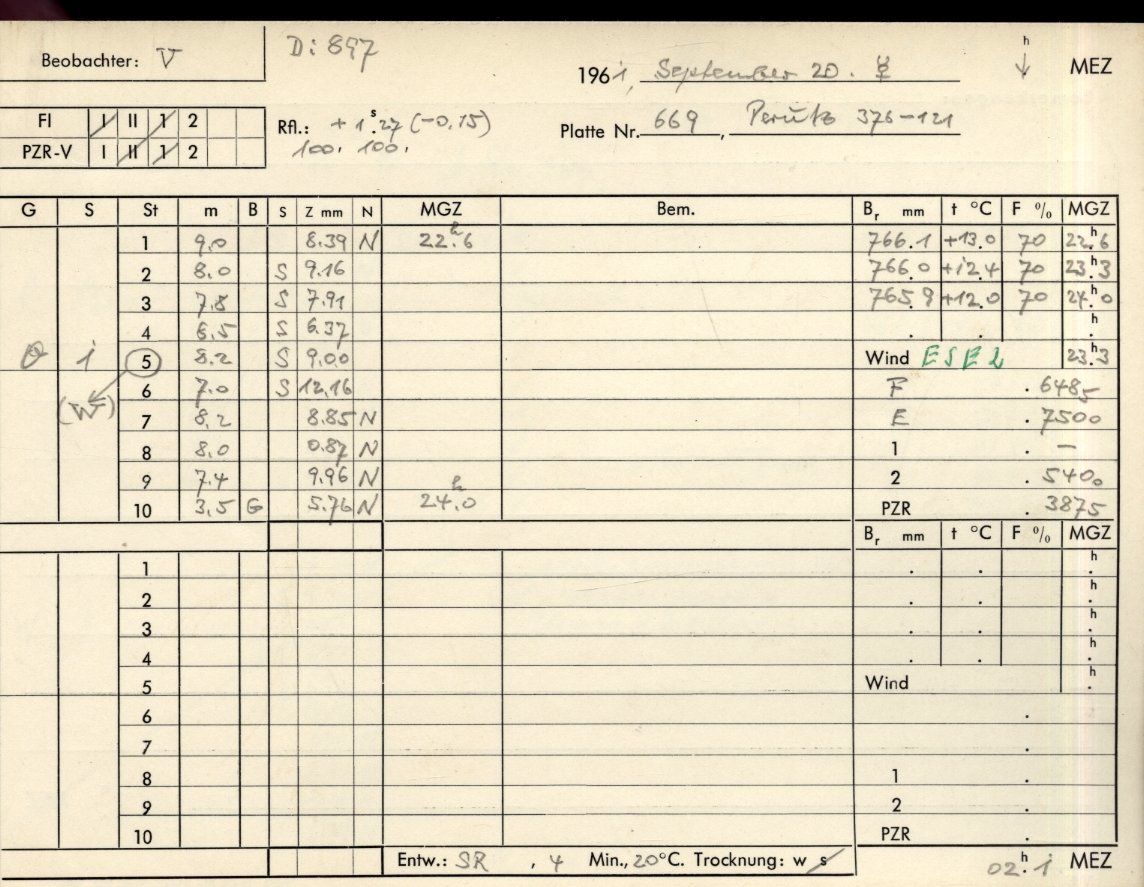 Beobachter: V
D: 897
1961, September 20. ☿
h MEZ
FI I II 1 2
PZR-V I II 1 2
Rfl.: + 1ˢ.27 (-0.15)
100. 100.
Platte Nr. 669, Perutz 376-121
G S St m B S Z mm N MGZ Bem. Bᵣ mm t °C F % MGZ
1 9.0 8.39 N 22ʰ.6 766.1 +13.0 70 22ʰ.6
2 8.0 S 9.16 766.0 +12.4 70 23ʰ.3
3 7.8 S 7.91 765.9 +12.0 70 24ʰ.0
4 6.5 S 6.37 . . h.
i 5 8.2 S 9.00 Wind ESE 2 23ʰ.3
6 7.0 S 12.16 F .6485
(W) 7 8.2 8.85 N E .7500
8 8.0 0.87 N 1 . —
9 7.4 9.96 N 2 .5400
10 3.5 G 5.76 N 24ʰ.0 PZR .3875
Bᵣ mm t °C F % MGZ
1 . . h.
2 . . h.
3 . . h.
4 . . h.
5 Wind h.
6 .
7 .
8 1 .
9 2 .
10 PZR .
Entw.: SR , 4 Min., 20°C. Trocknung: w s
02ʰ.1 MEZ